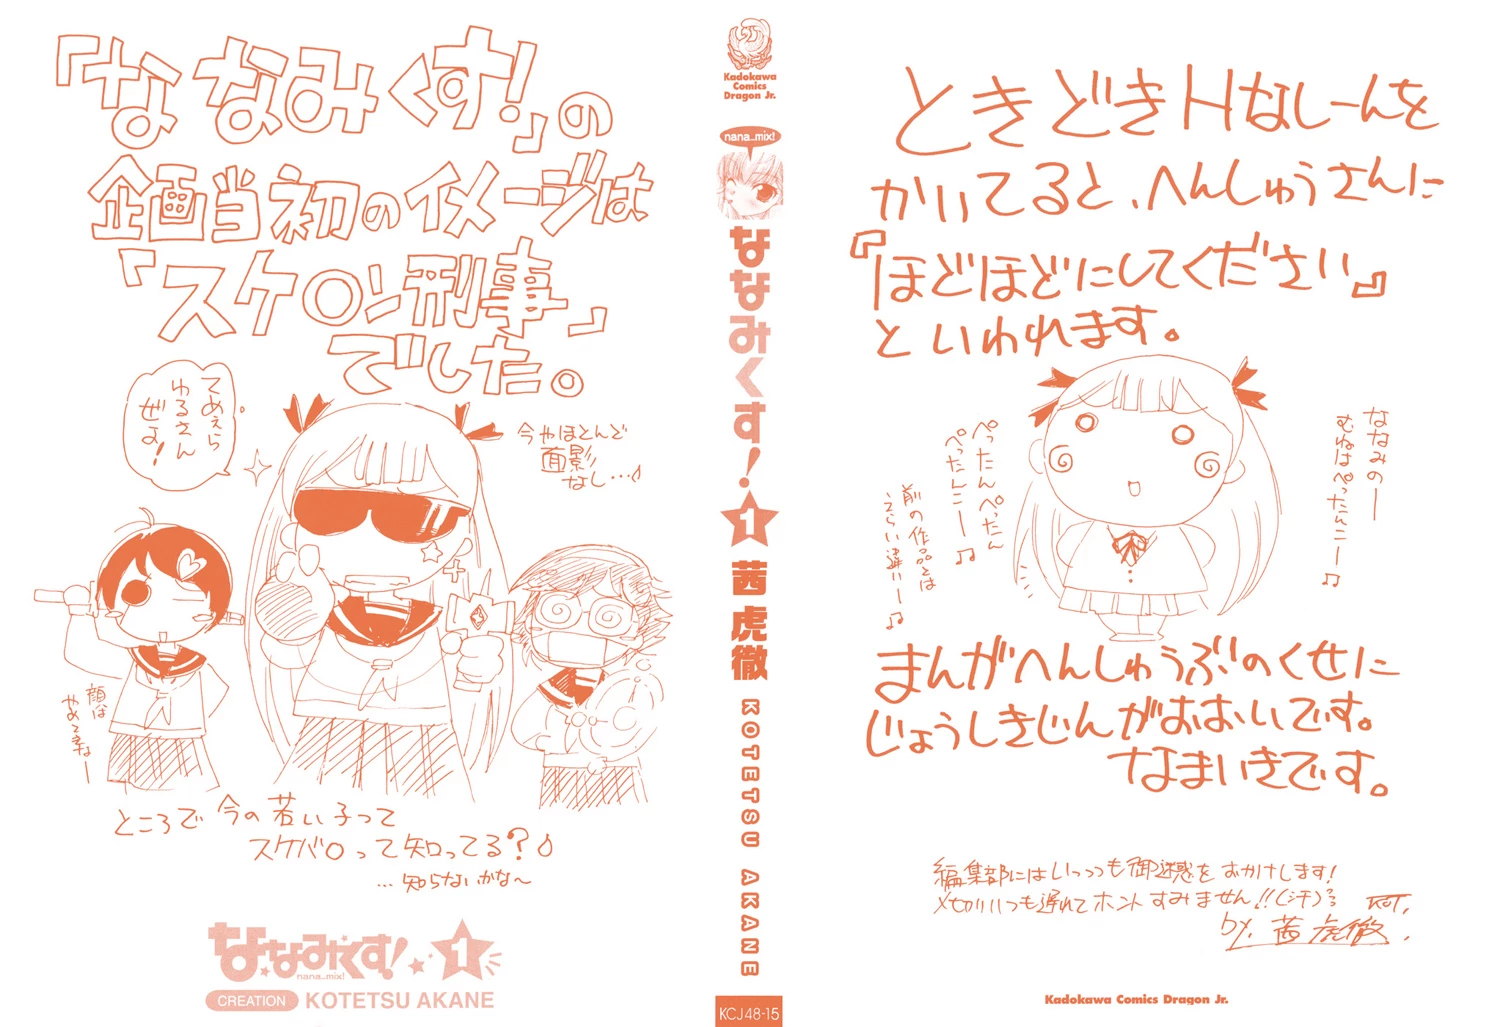 「ななみくす!」の
企画当初のイメージは
「スケ〇ン刑事」
でした。
てめぇら
ゆるさん
ぜよ!
今やほとんど
面影
なし…♪
顔は
やめてきなー
ところで今の若い子って
スケバ〇って知ってる?♪
…知らないかな〜
ななみくす!
nana_mix!
1
CREATION KOTETSU AKANE
Kadokawa
Comics
Dragon Jr.
nana_mix!
ななみくす!
1
茜虎徹
KOTETSU AKANE
KCJ48-15
ときどきHなしーんを
かいてると、へんしゅうさんに
『ほどほどにしてください』
といわれます。
ななみのー
むねはぺったんこー♫
ぺったんぺったん
ぺったんこー♫
前の作品とは
えらい違いー♫
まんがへんしゅうぶのくせに
じょうしきじんがおおいです。
なまいきです。
編集部にはいっつも御迷惑をおかけします!
〆切りいつも遅れてホントすみません!!(汗)
by. 茜虎徹.
Kadokawa Comics Dragon Jr.